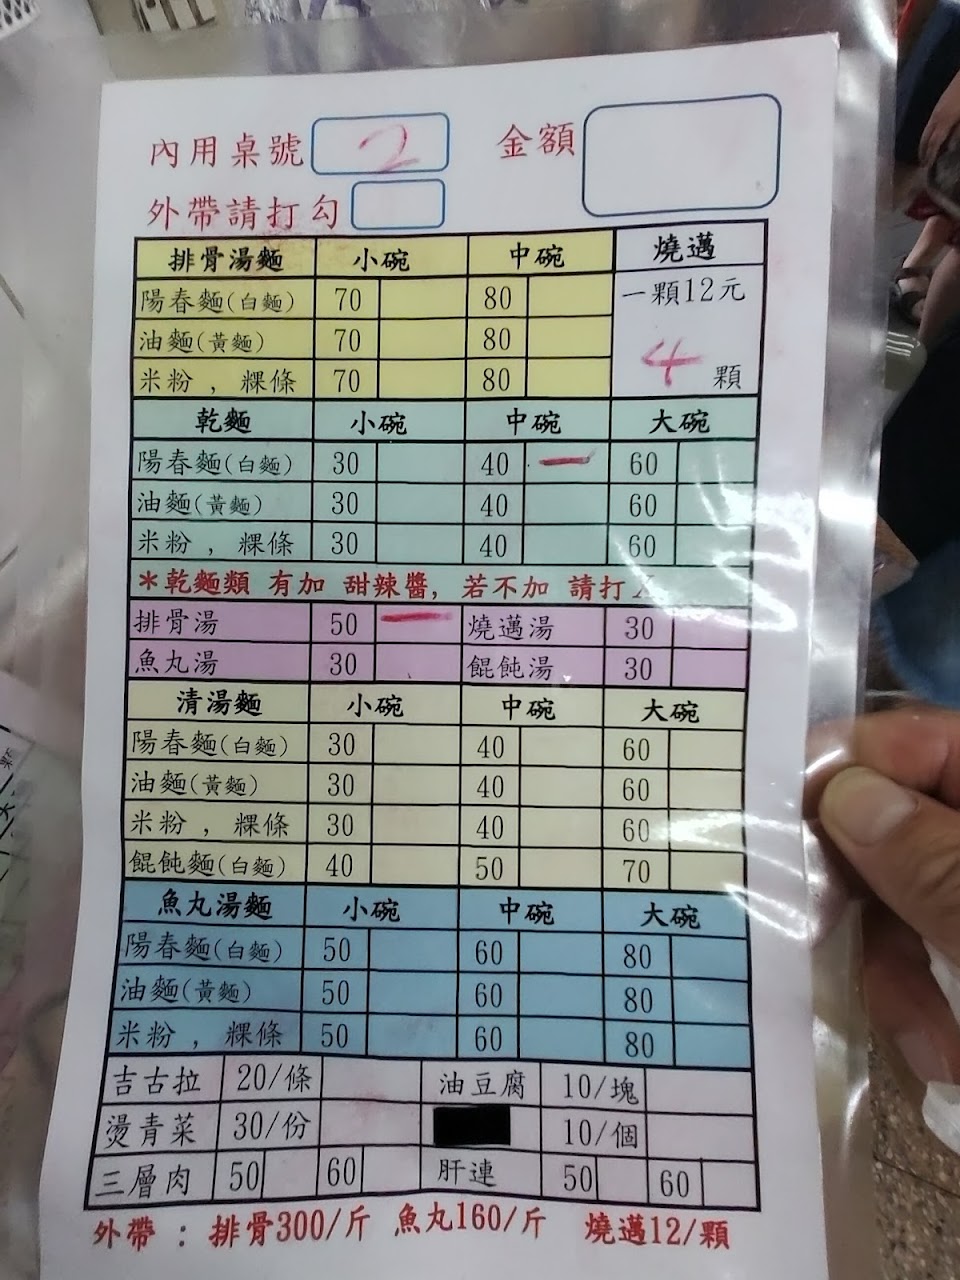 內用桌號 2 金額
外帶請打勾
排骨湯麵 小碗 中碗 燒邁
陽春麵(白麵) 70 80 一顆12元
油麵(黃麵) 70 80
米粉，粿條 70 80 4 顆
乾麵 小碗 中碗 大碗
陽春麵(白麵) 30 40 一 60
油麵(黃麵) 30 40 60
米粉，粿條 30 40 60
*乾麵類 有加 甜辣醬, 若不加 請打X
排骨湯 50 一 燒邁湯 30
魚丸湯 30 餛飩湯 30
清湯麵 小碗 中碗 大碗
陽春麵(白麵) 30 40 60
油麵(黃麵) 30 40 60
米粉，粿條 30 40 60
餛飩麵(白麵) 40 50 70
魚丸湯麵 小碗 中碗 大碗
陽春麵(白麵) 50 60 80
油麵(黃麵) 50 60 80
米粉，粿條 50 60 80
吉古拉 20/條 油豆腐 10/塊
燙青菜 30/份 10/個
三層肉 50 60 肝連 50 60
外帶：排骨300/斤 魚丸160/斤 燒邁12/顆